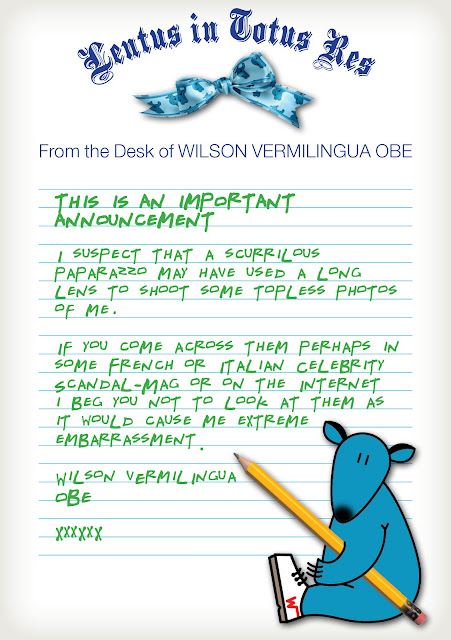 Lentus in Totus Res
From the Desk of WILSON VERMILINGUA OBE
THIS IS AN IMPORTANT
ANNOUNCEMENT
I SUSPECT THAT A SCURRILOUS
PAPARAZZO MAY HAVE USED A LONG
LENS TO SHOOT SOME TOPLESS PHOTOS
OF ME.
IF YOU COME ACROSS THEM PERHAPS IN
SOME FRENCH OR ITALIAN CELEBRITY
SCANDAL-MAG OR ON THE INTERNET
I BEG YOU NOT TO LOOK AT THEM AS
IT WOULD CAUSE ME EXTREME
EMBARRASSMENT.
WILSON VERMILINGUA
OBE
XXXXXX
W